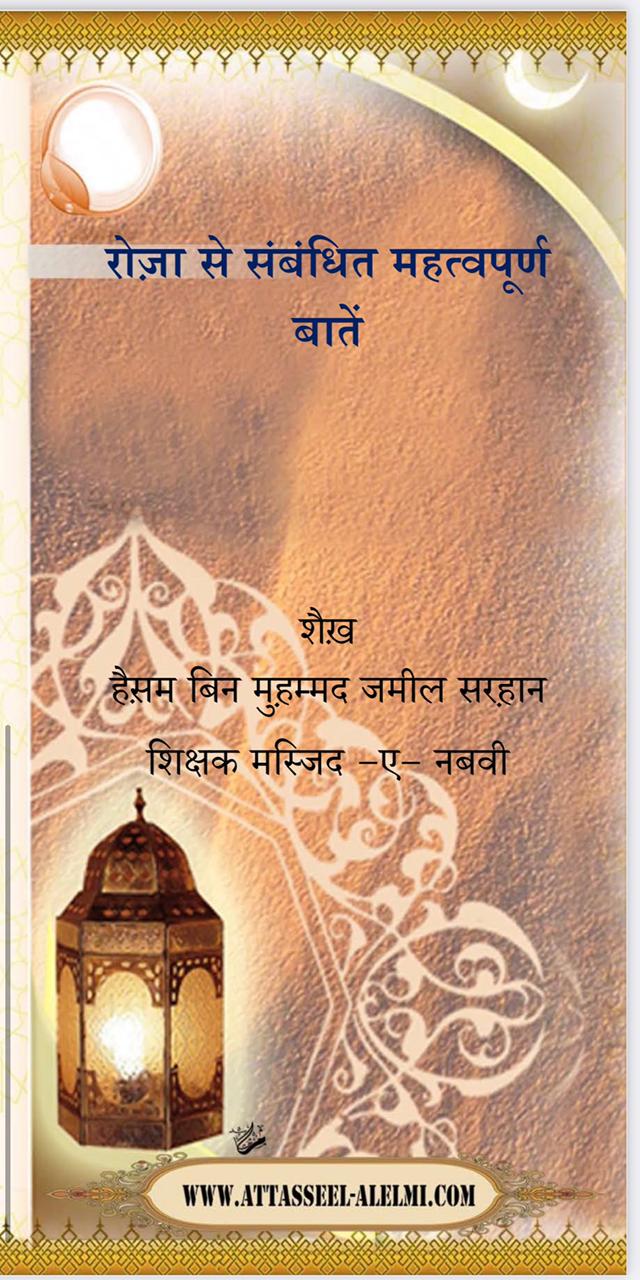 रोज़ा से संबंधित महत्वपूर्ण
बातें
शैख़
हैस़म बिन मुह़म्मद जमील सरह़ान
शिक्षक मस्जिद -ए- नबवी
WWW.ATTASSEEL-ALELMI.COM